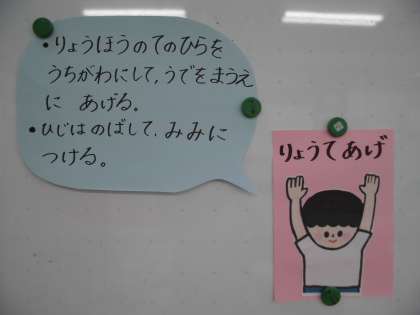 ・りょうほうのてのひらを
うちがわにして,うでをまうえ
に あげる。
・ひじはのばして,みみに
つける。
りょうてあげ